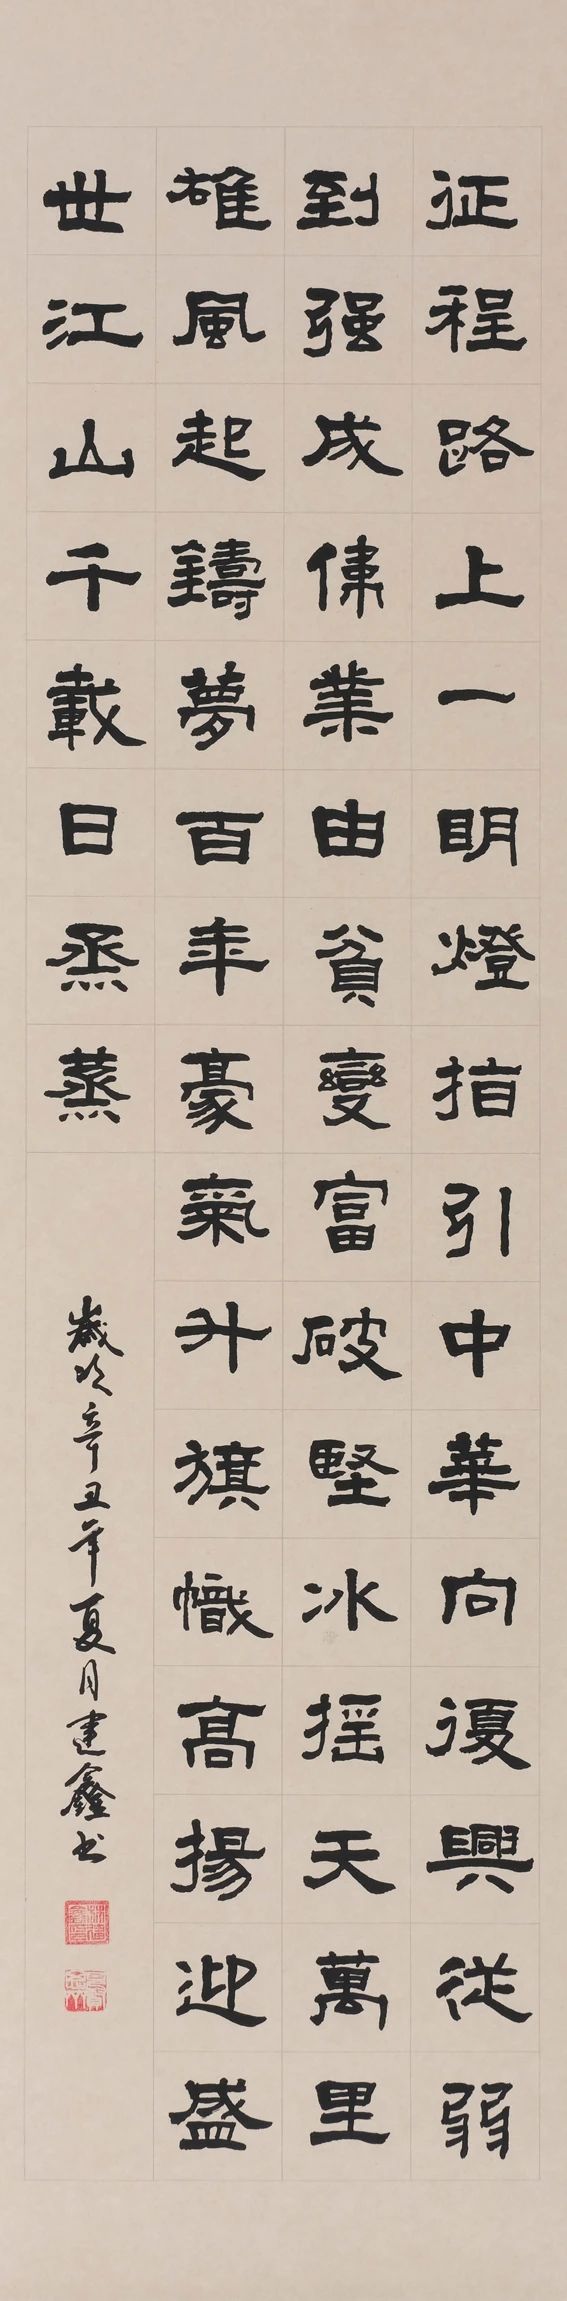 征程路上一明燈指引中華向復興從弱
到强成偉業由貧變富破堅冰摇天萬里
雄風起鑄夢百年豪氣升旗幟高揚迎盛
世江山千載日烝蒸
歲次辛丑年夏月建鑫书